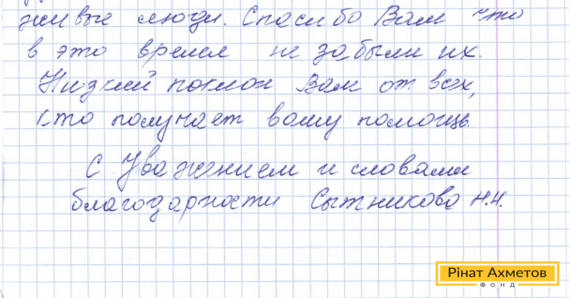 живые люди. Спасибо Вам что
в это время не забыли их.
Низкий поклон Вам от всех,
кто получает вашу помощь.
С Уважением и словами
благодарности Сытникова Н.Н.
Рінат Ахметов
ФОНД